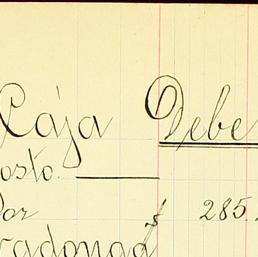 Cája Debe
osto.
Por $ 285
radonga